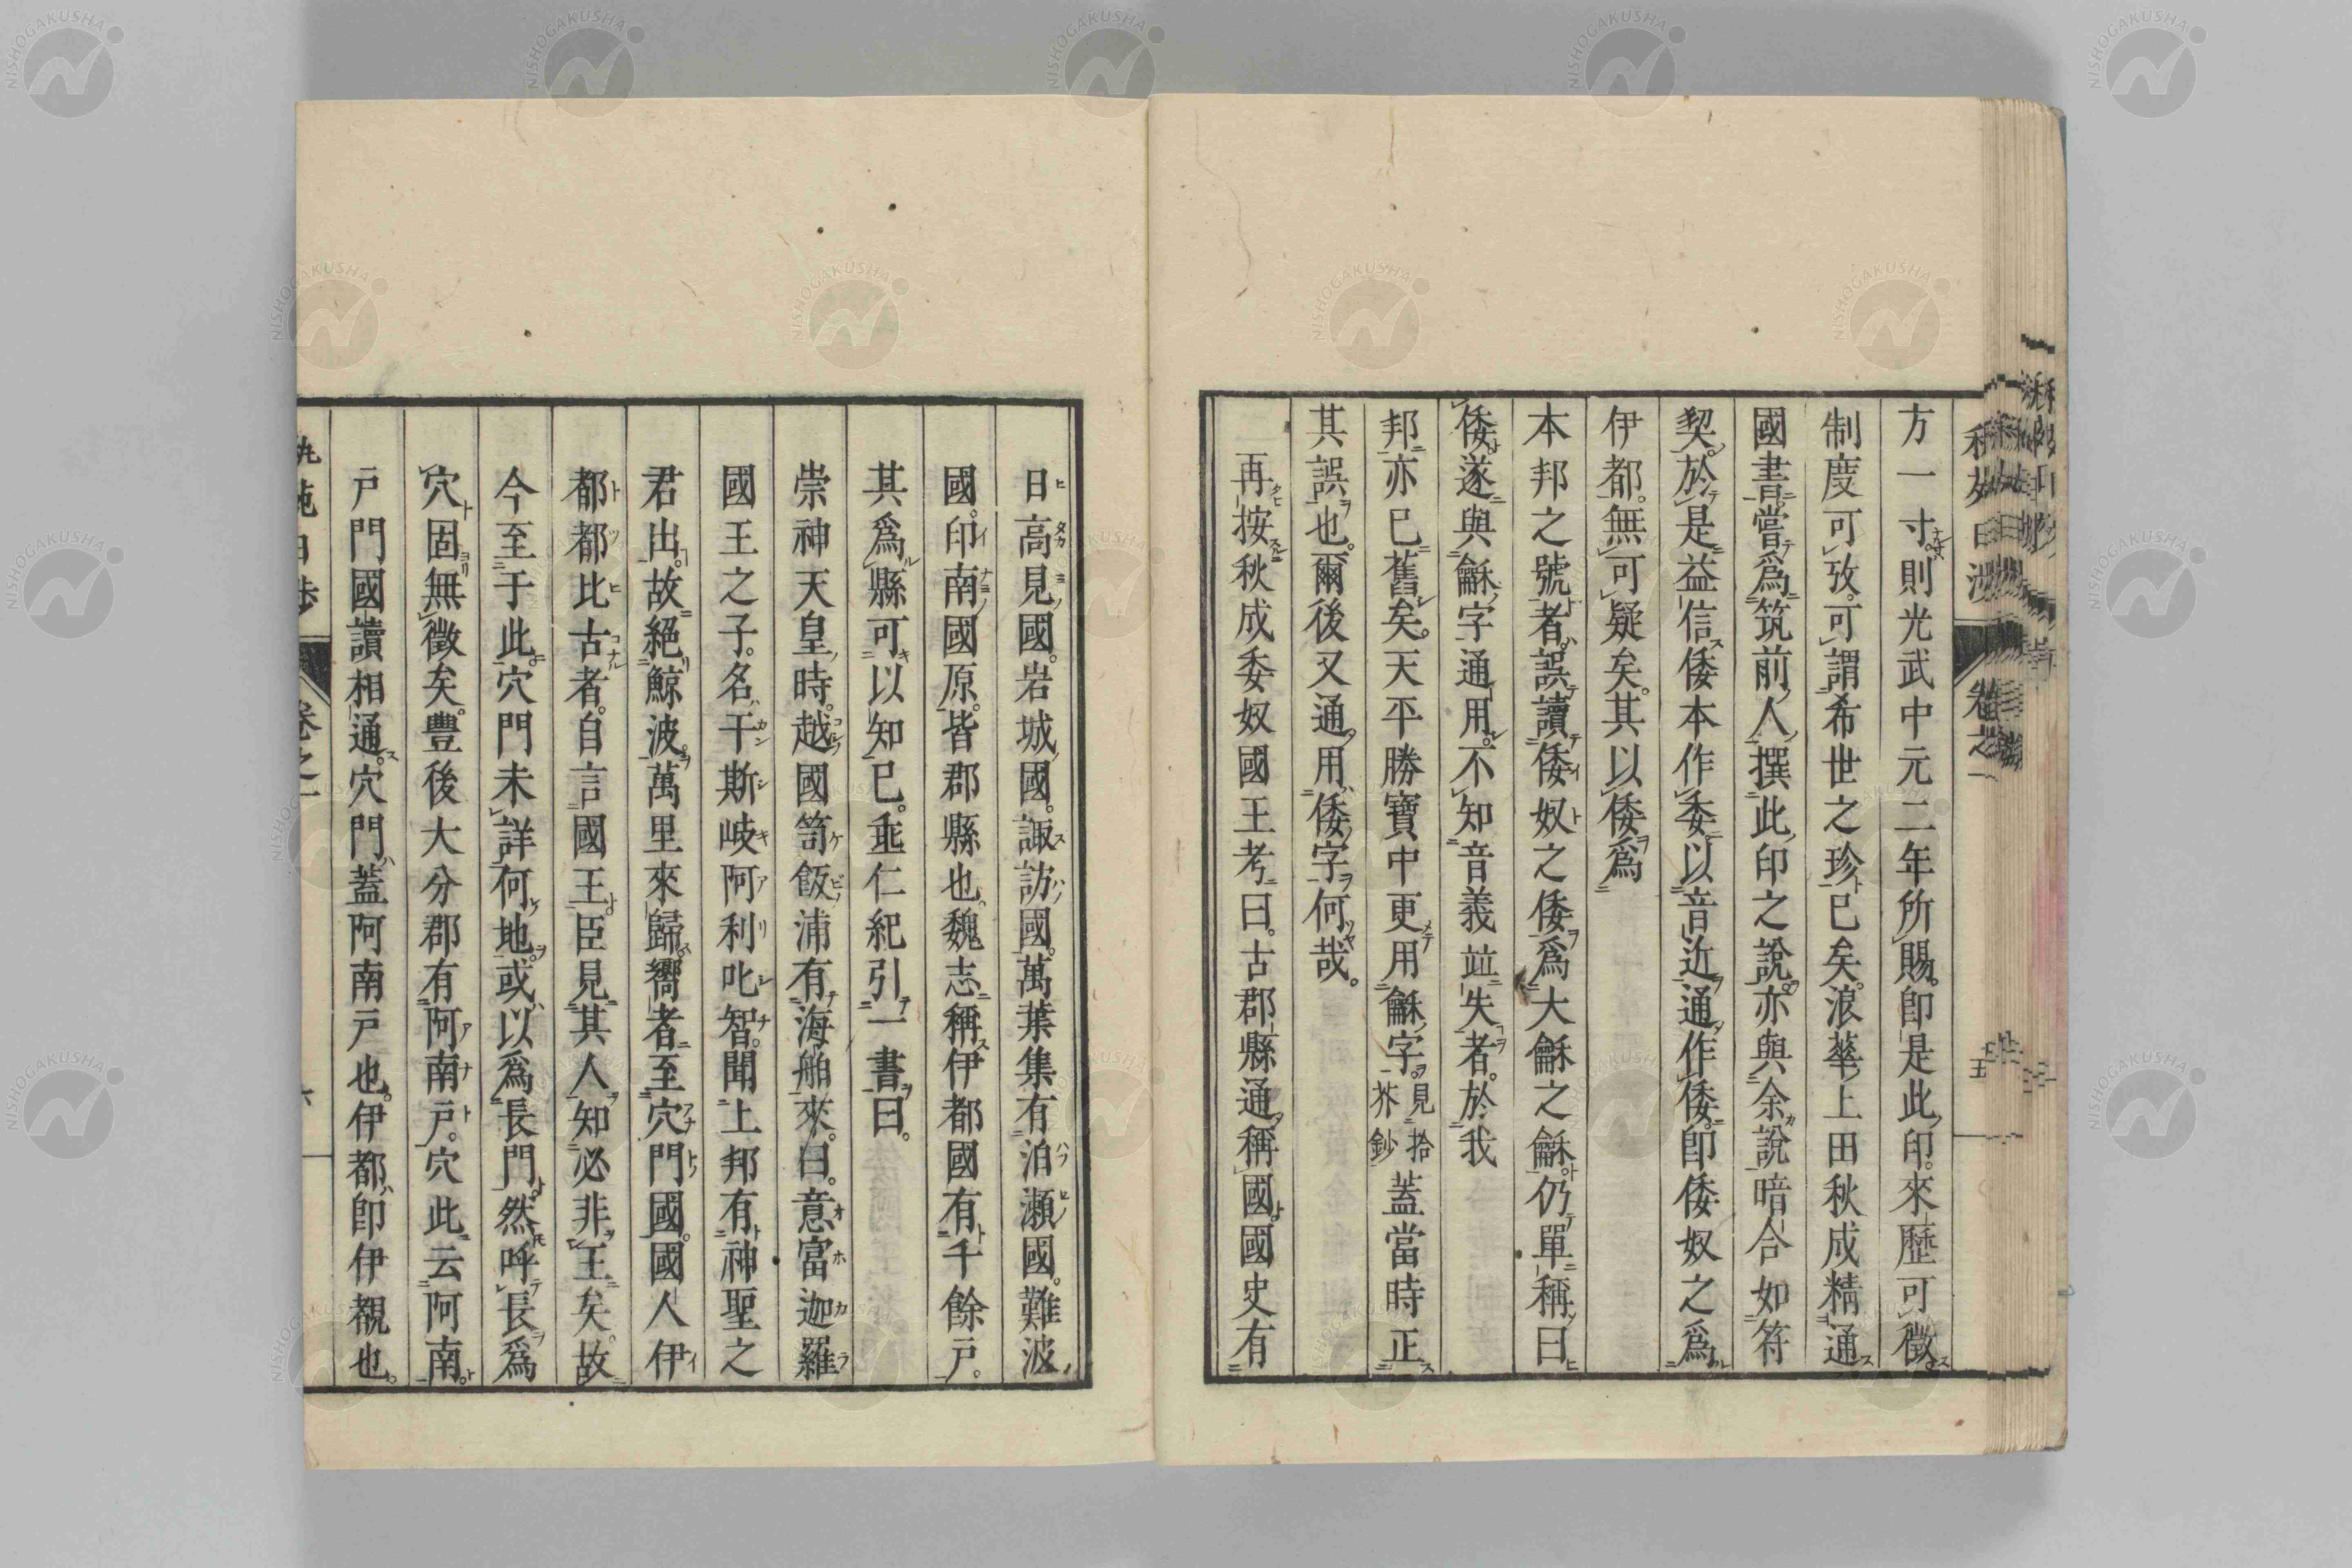 方一寸。則光武中元二年所賜。卽是此印。來歷可徵
制度可攷。可謂希世之珍已矣。浪華上田秋成精通
國書。嘗爲筑前人撰此印之說。亦與余說暗合如符
契。於是益信倭本作委以音近通作倭。卽倭奴之爲
伊都。無可疑矣。其以倭爲
本邦之號者。誤讀倭奴之倭爲大龢之龢。仍單稱曰
倭。遂與龢字通用。不知音義竝失者。於我
邦亦已舊矣。天平勝寶中更用龢字。見拾芥鈔蓋當時正
其誤也。爾後又通用倭字何哉。
再按秋成委奴國王考曰。古郡縣通稱國。國史有
日高見國。岩城國。諏訪國。萬葉集有泊瀬國。難波
國。印南國原。皆郡縣也。魏志稱伊都國有千餘戸。
其爲縣可以知已。垂仁紀引一書曰。
崇神天皇時。越國笥飯浦有海舶來。曰。意富迦羅
國王之子。名干斯岐阿利叱智。聞上邦有神聖之
君出。故絕鯨波。萬里來歸。嚮者至穴門國。國人伊
都都比古者。自言國王。臣見其人知必非王矣。故
今至于此。穴門未詳何地。或以爲長門。然呼長爲
穴固無徵矣。豐後大分郡有阿南戸。穴此云阿南。
戸門國讀相通。穴門蓋阿南戸也。伊都卽伊覩也。
卷之一
五
NISHOGAKUSHA